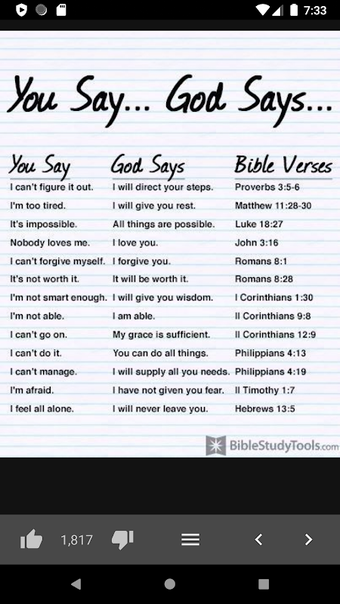 7:33
You Say... God Says...
You Say God Says Bible Verses
I can't figure it out. I will direct your steps. Proverbs 3:5-6
I'm too tired. I will give you rest. Matthew 11:28-30
It's impossible. All things are possible. Luke 18:27
Nobody loves me. I love you. John 3:16
I can't forgive myself. I forgive you. Romans 8:1
It's not worth it. It will be worth it. Romans 8:28
I'm not smart enough. I will give you wisdom. I Corinthians 1:30
I'm not able. I am able. II Corinthians 9:8
I can't go on. My grace is sufficient. II Corinthians 12:9
I can't do it. You can do all things. Philippians 4:13
I can't manage. I will supply all you needs. Philippians 4:19
I'm afraid. I have not given you fear. II Timothy 1:7
I feel all alone. I will never leave you. Hebrews 13:5
BibleStudyTools.com
1,817